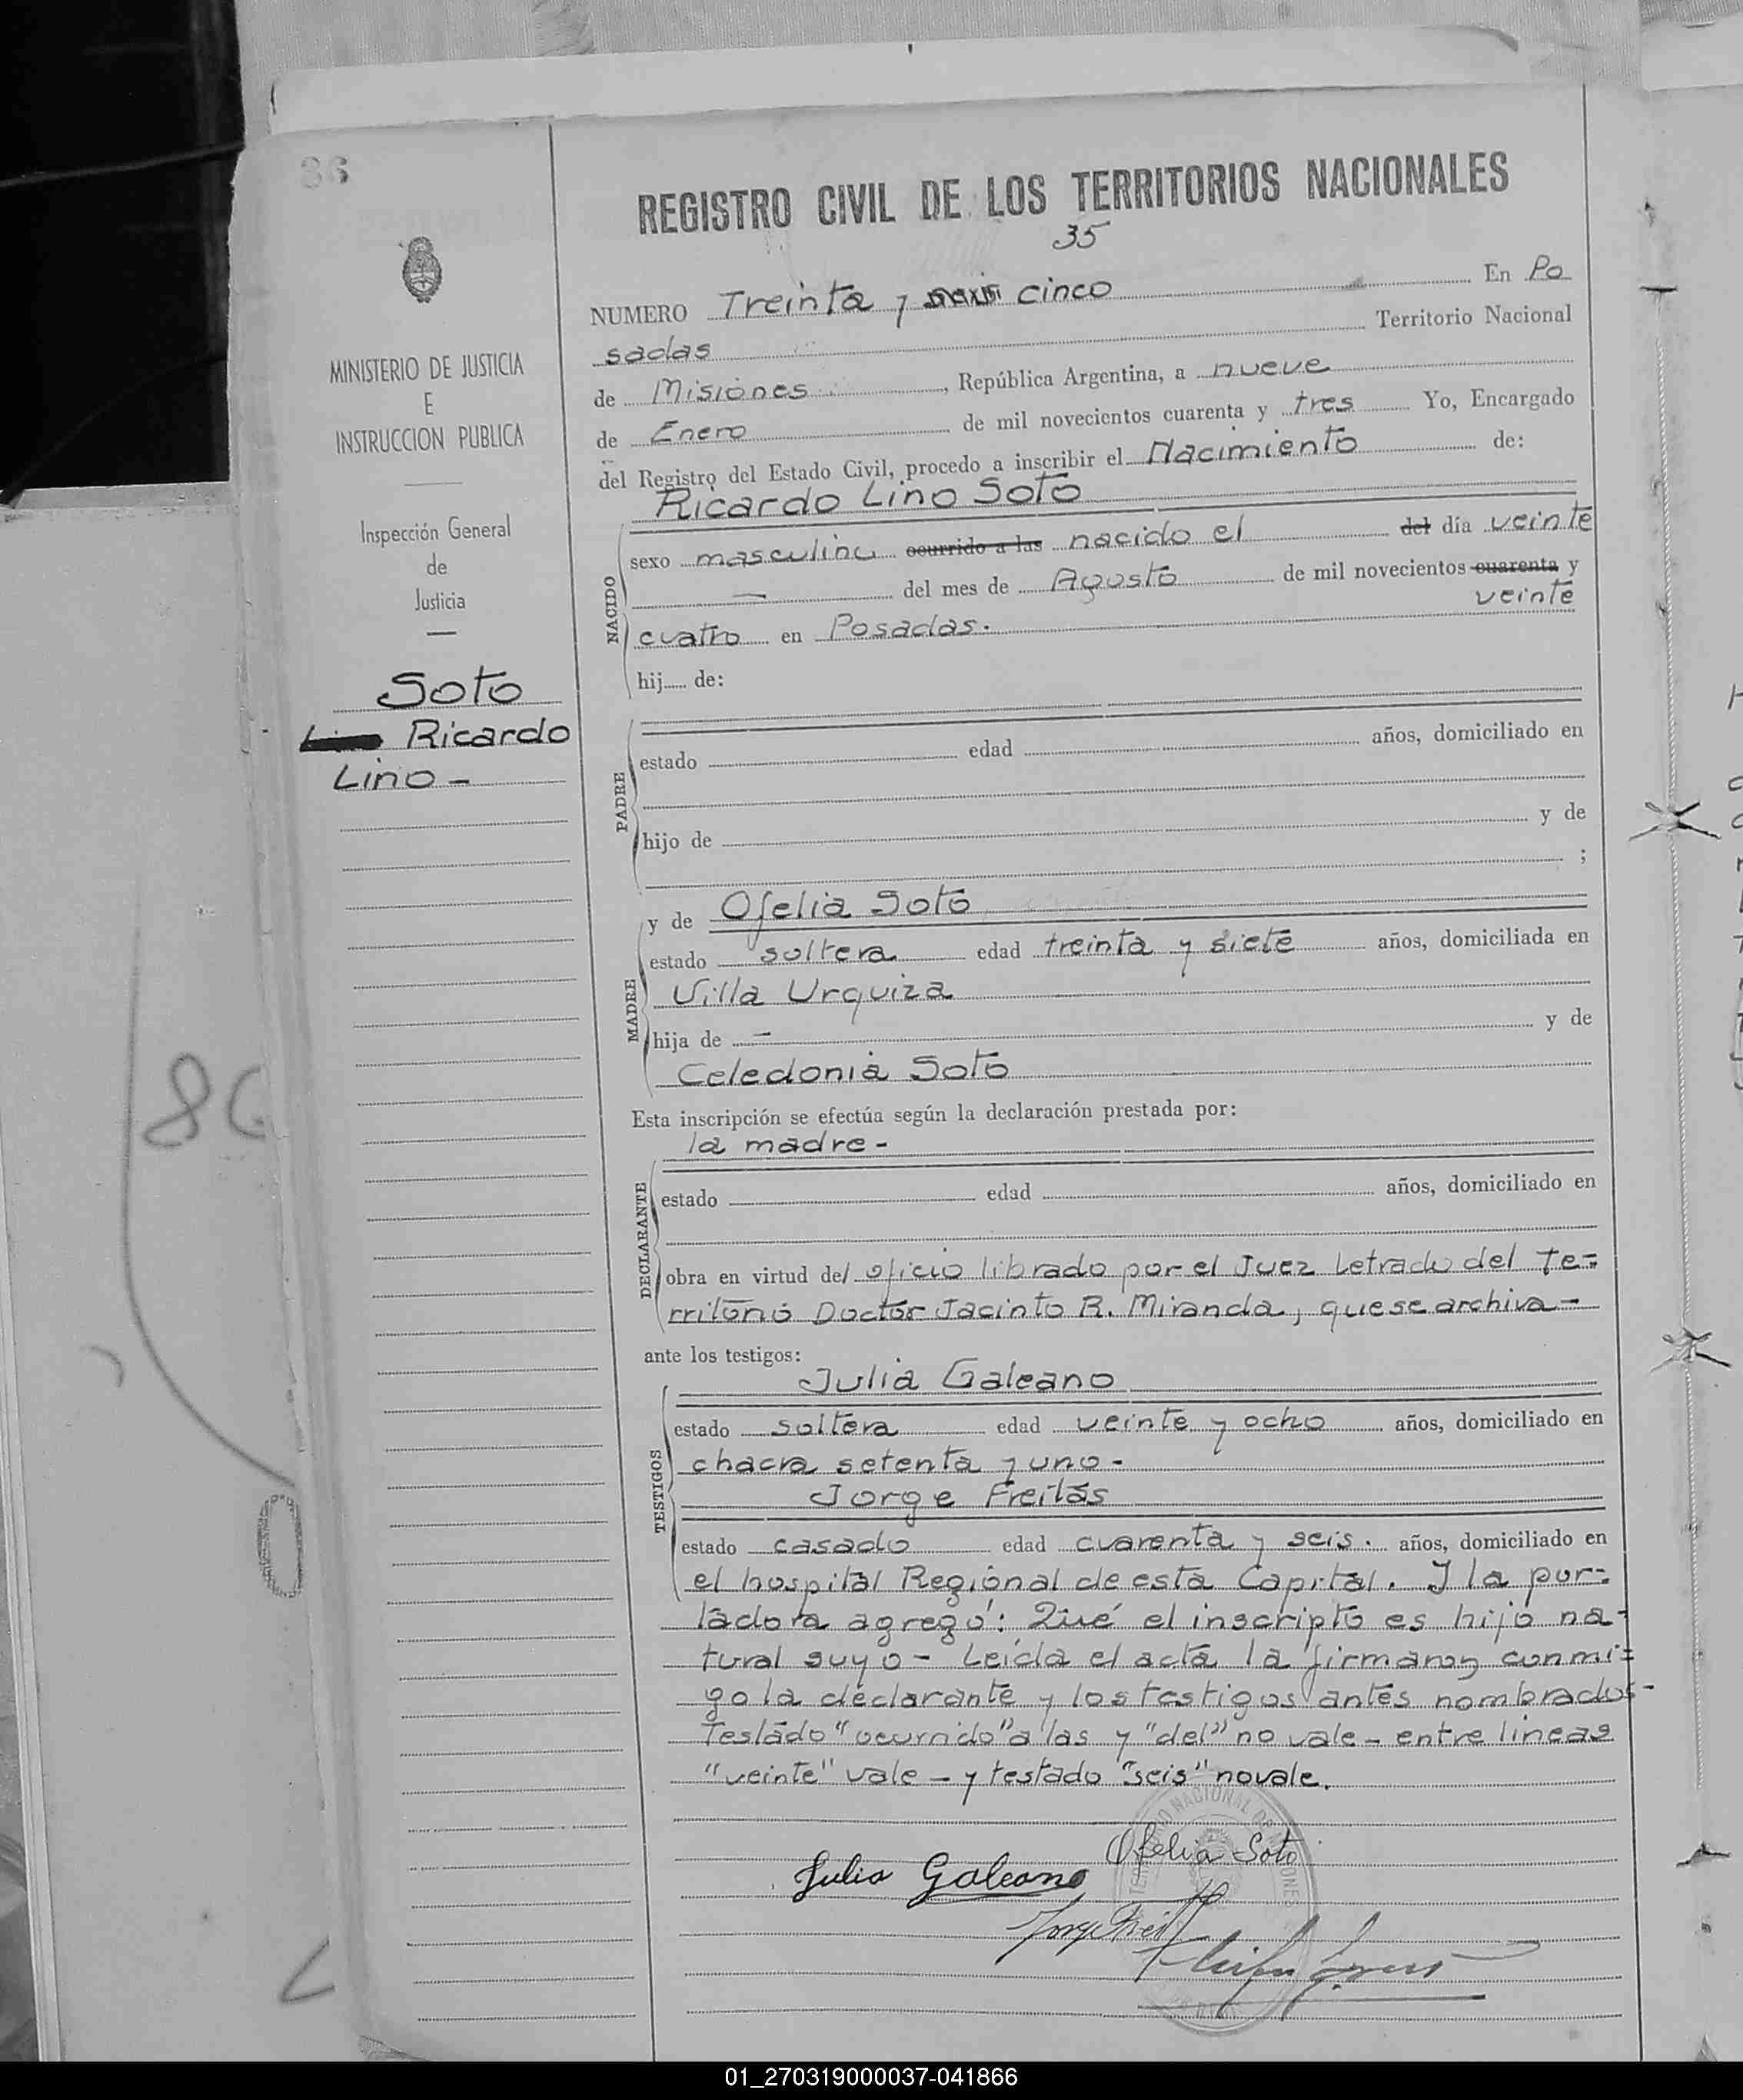 86
REGISTRO CIVIL DE LOS TERRITORIOS NACIONALES
35
NUMERO Treinta y seis cinco En Po
sadas Territorio Nacional
de Misiones, República Argentina, a nueve
de Enero de mil novecientos cuarenta y tres Yo, Encargado
del Registro del Estado Civil, procedo a inscribir el Nacimiento de:
Ricardo Lino Soto
NACIDO
sexo masculino ocurrido a las nacido el del día veinte
— del mes de Agosto de mil novecientos cuarenta y
veinte
cuatro en Posadas.
hij de:
PADRE
estado edad años, domiciliado en
hijo de y de
;
y de Ofelia Soto
MADRE
estado soltera edad treinta y siete años, domiciliada en
Villa Urquiza
hija de — y de
Celedonia Soto
Esta inscripción se efectúa según la declaración prestada por:
la madre -
DECLARANTE
estado edad años, domiciliado en
obra en virtud del oficio librado por el Juez Letrado del Te=
rritorio Doctor Jacinto R. Miranda, que se archiva -
ante los testigos:
Julia Galeano
TESTIGOS
estado soltera edad veinte y ocho años, domiciliado en
chacra setenta y uno -
Jorge Freitas
estado casado edad cuarenta y seis. años, domiciliado en
el hospital Regional de esta Capital. Y la por=
tadora agregó: Que el inscripto es hijo na-
tural suyo - Leida el acta la firmaron conmi=
go la declarante y los testigos antes nombrados -
Testado "ocurrido" a las y "del" no vale - entre lineas
"veinte" vale - y testado "seis" no vale.
Ofelia Soto
Julia Galeano
MINISTERIO DE JUSTICIA
E
INSTRUCCION PUBLICA
Inspección General
de
Justicia
Soto
Lino Ricardo
Lino -
86
01_270319000037-041866